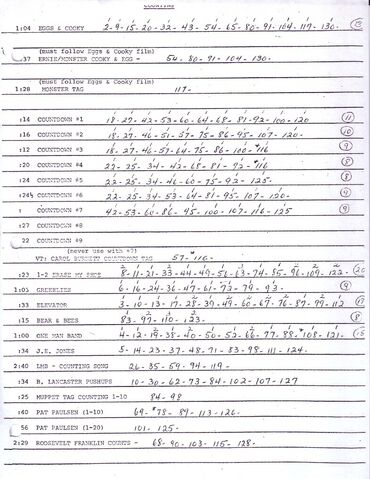 COUNTING
1:04 EGGS & COOKY 2-9-15-20-32-43-54-65-80-91-104-117-130- (13)
(must follow Eggs & Cooky film)
:37 ERNIE/MONSTER COOKY & EGG - 54-80-91-104-130-
(must follow Eggs & Cooky film)
1:28 MONSTER TAG 117-
:14 COUNTDOWN #1 18-27-42-53-60-64-68-81-92-100-120 (11)
:16 COUNTDOWN #2 18-27-46-51-57-75-86-95-107-120 (10)
:12 COUNTDOWN #3 18-27-46-57-64-75-86-100-*116 (9)
:20 COUNTDOWN #4 22-25-34-42-68-81-92-*116 (8)
:24 COUNTDOWN #5 22-25-34-46-60-75-92-125- (8)
COUNTDOWN #6 22-25-34-53-64-81-95-107-120 (9)
COUNTDOWN #7 42-53-60-86-95-100-107-116-125 (9)
:27 COUNTDOWN #8
22 COUNTDOWN #9
(never use with #7)
VT: CAROL BURNETT COUNTDOWN TAG 57-*116-
:23 1-2 SHOE 8-11-21-33-44-49-56-63-74-85-96-109-122- (20)
1:05 GREEBLIES 6-16-24-36-47-61-72-79-93- (9)
:33 ELEVATOR 3-10-13-17-28-39-49-60-67-76-87-99-112
:15 BEAR & BEES 83-97-110-123- (8)
1:00 ONE MAN BAND 4-12-19-38-40-50-52-66-77-88-*108-121-
:34 J.E. JONES 5-14-23-37-48-71-83-98-111-124-
2:40 LMB - COUNTING SONG 26-35-59-94-119-
:34 B. LANCASTER PUSHUPS 10-30-62-73-84-102-107-127
:25 MUPPET TAG COUNTING 1-10 84-98
:40 PAT PAULSEN (1-10) 69-*78-89-113-126-
56 PAT PAULSEN (1-20) 101-125-
2:29 ROOSEVELT FRANKLIN COUNTS - 68-90-103-115-128-